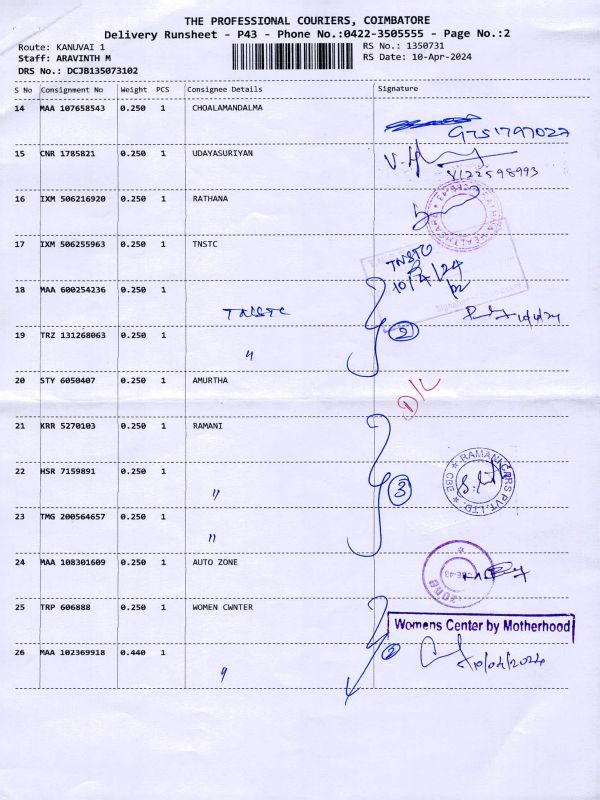 THE PROFESSIONAL COURIERS, COIMBATORE
Delivery Runsheet - P43 - Phone No.:0422-3505555 - Page No.:2
Route: KANUVAI 1
RS No.: 1350731
Staff: ARAVINTH M
RS Date: 10-Apr-2024
DRS No.: DCJB135073102
S No Consignment No Weight PCS Consignee Details Signature
14 MAA 107658543 0.250 1 CHOALAMANDALMA
9751797027
15 CNR 1785821 0.250 1 UDAYASURIYAN
8122598993
16 IXM 506216920 0.250 1 RATHANA
17 IXM 506255963 0.250 1 TNSTC
TNSTC
10/4/24
18 MAA 600254236 0.250 1
TNSTC
2
19 TRZ 131268063 0.250 1
"
20 STY 6050407 0.250 1 AMURTHA
D/L
21 KRR 5270103 0.250 1 RAMANI
RAMANI CARS PVT.LTD. CBE
22 HSR 7159891 0.250 1
"
3
23 TMG 200564657 0.250 1
"
24 MAA 108301609 0.250 1 AUTO ZONE
25 TRP 606888 0.250 1 WOMEN CWNTER
Womens Center by Motherhood
26 MAA 102369918 0.440 1
"
2
10/04/2024